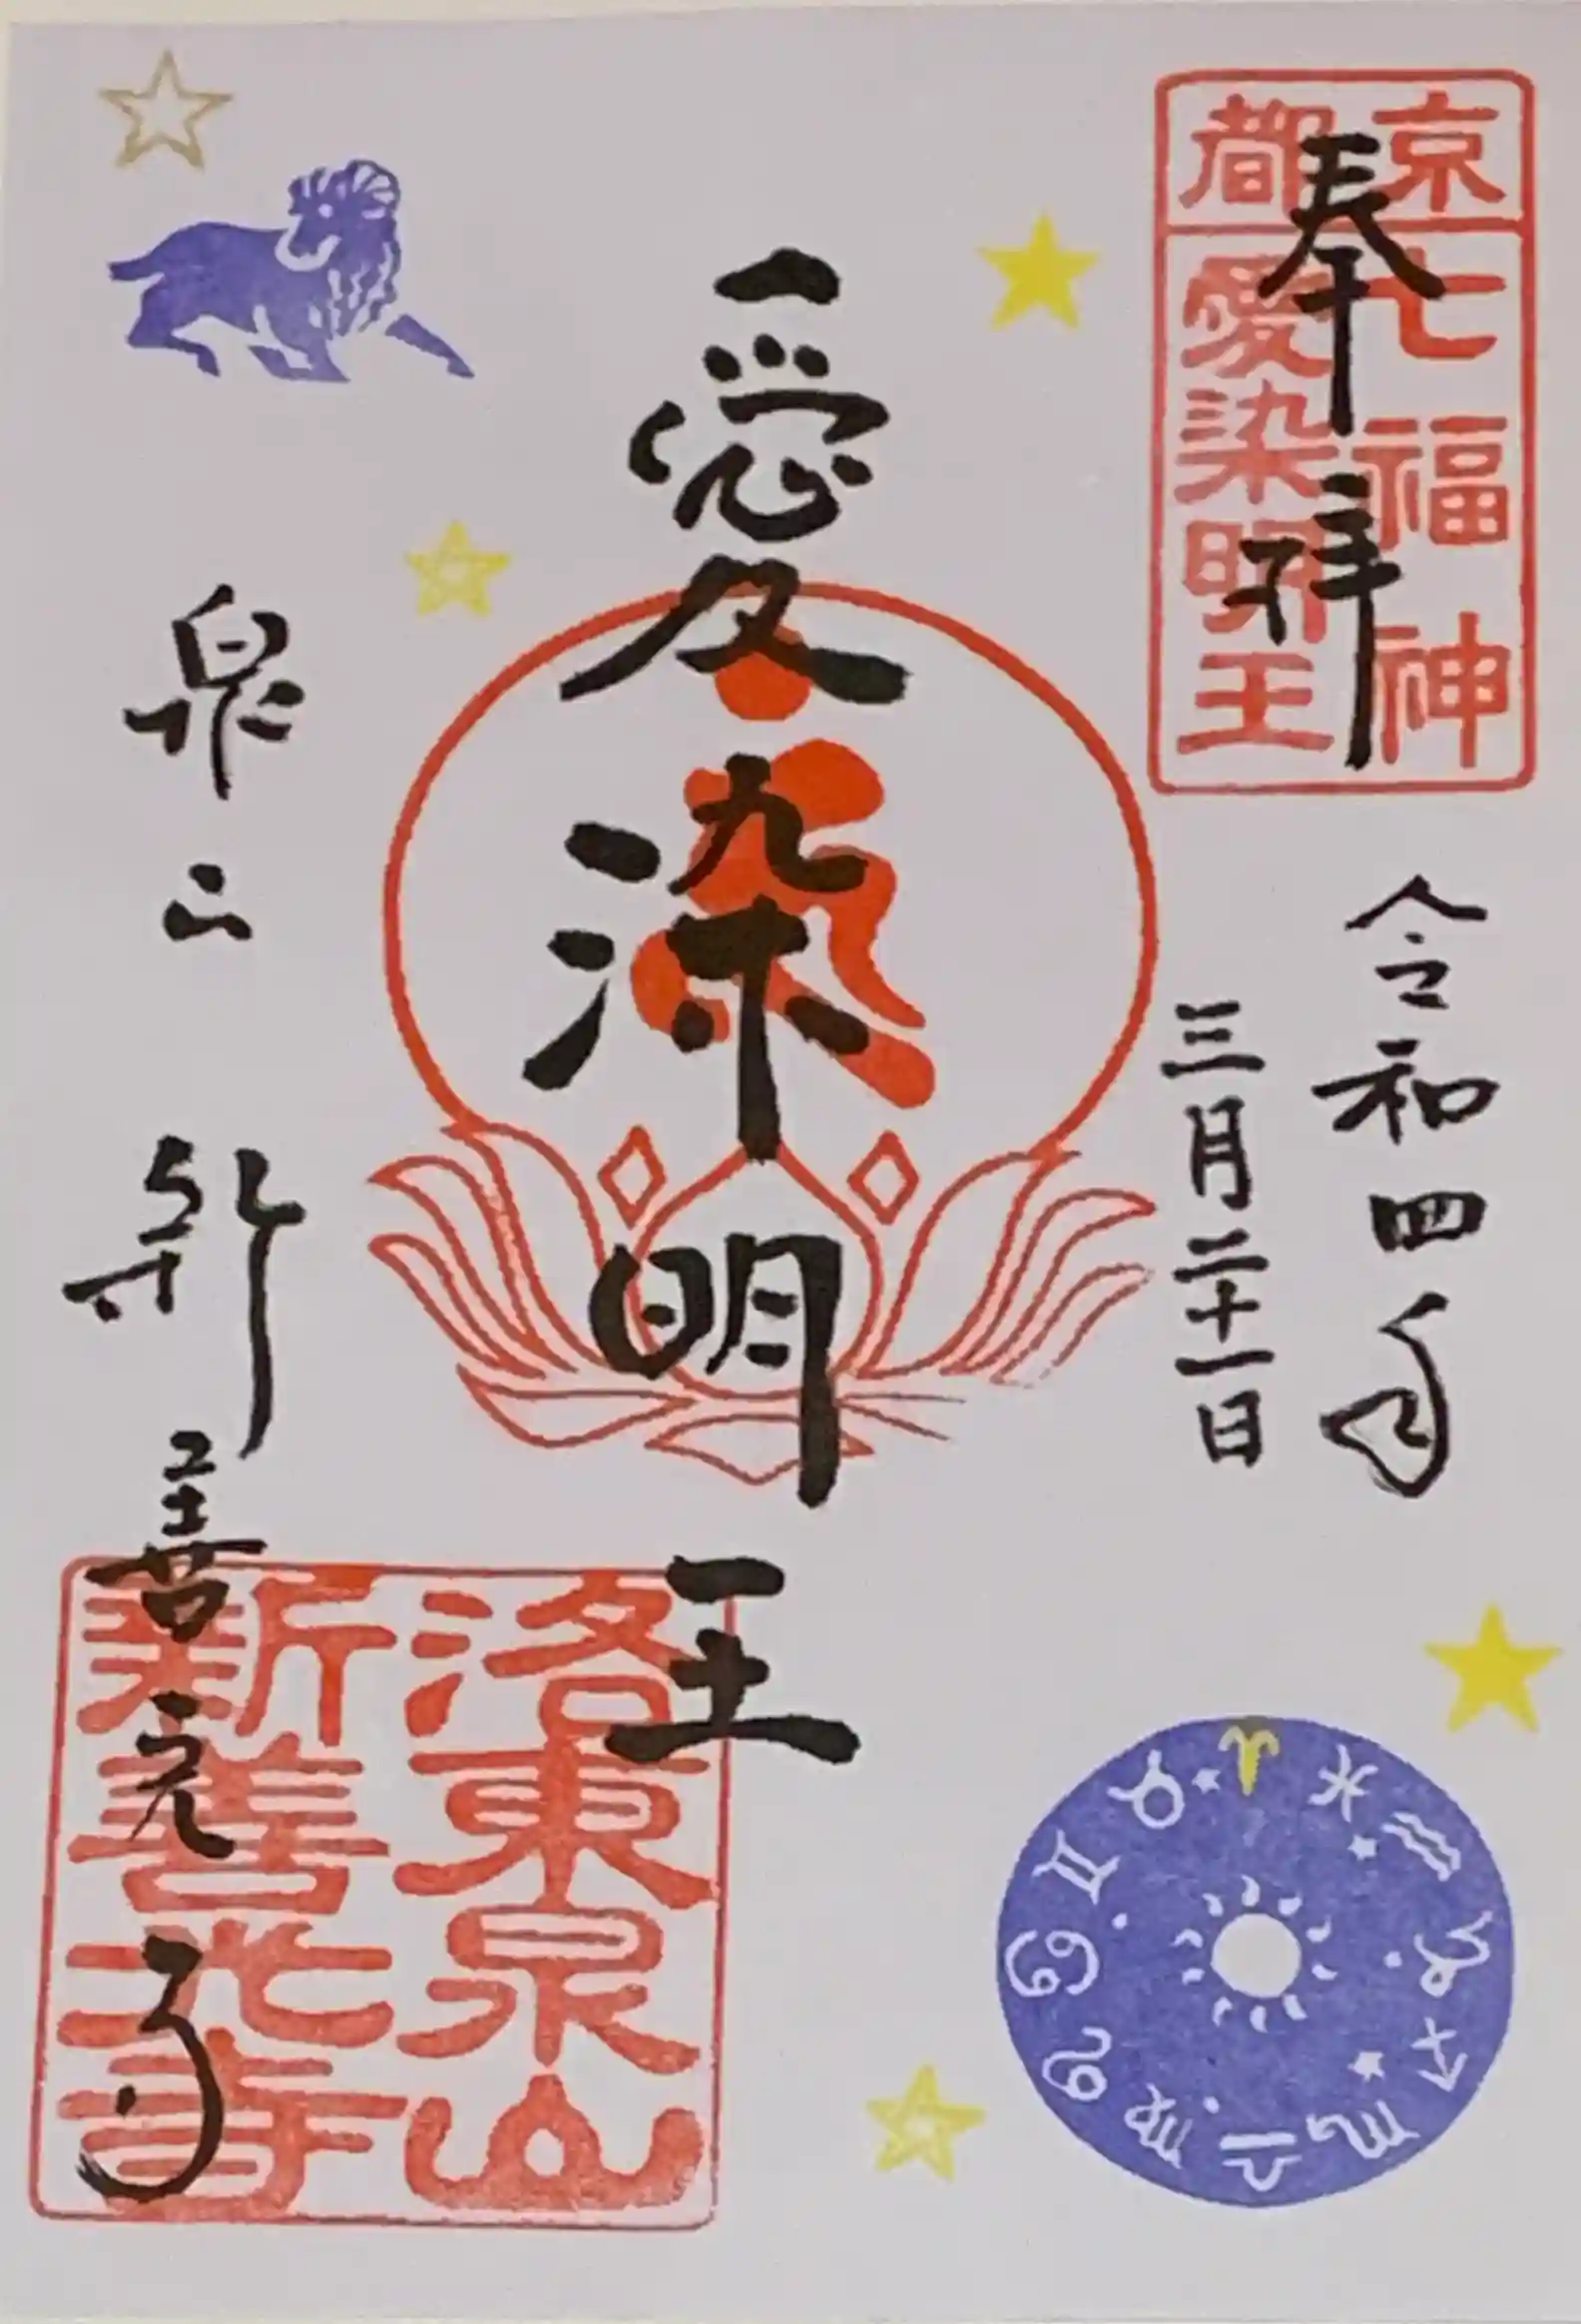 奉拝
京都
七福神
愛染明王
令和四年
三月二十一日
愛染明王
泉山 新善光寺
洛東泉山
新善光寺